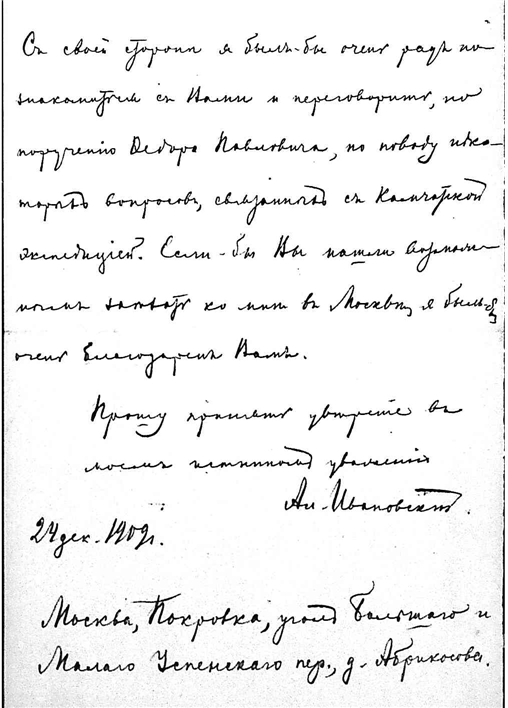 Съ своей стороны я былъ-бы очень радъ по-
знакомиться съ Вами и переговорить, по
порученію Ѳедора Павловича, по поводу нѣко-
торыхъ вопросовъ, связанныхъ съ Камчатской
экспедиціей. Если-бы Вы нашли возмож-
нымъ заѣхать ко мнѣ въ Москвѣ, я былъ-бы
очень благодаренъ Вамъ.
Прошу принять увѣреніе въ
моемъ истинномъ уваженіи
Ал. Ивановскій.
24 дек. 1909г.
Москва, Покровка, уголъ Большаго и
Малаго Успенскаго пер., д. Абрикосова.